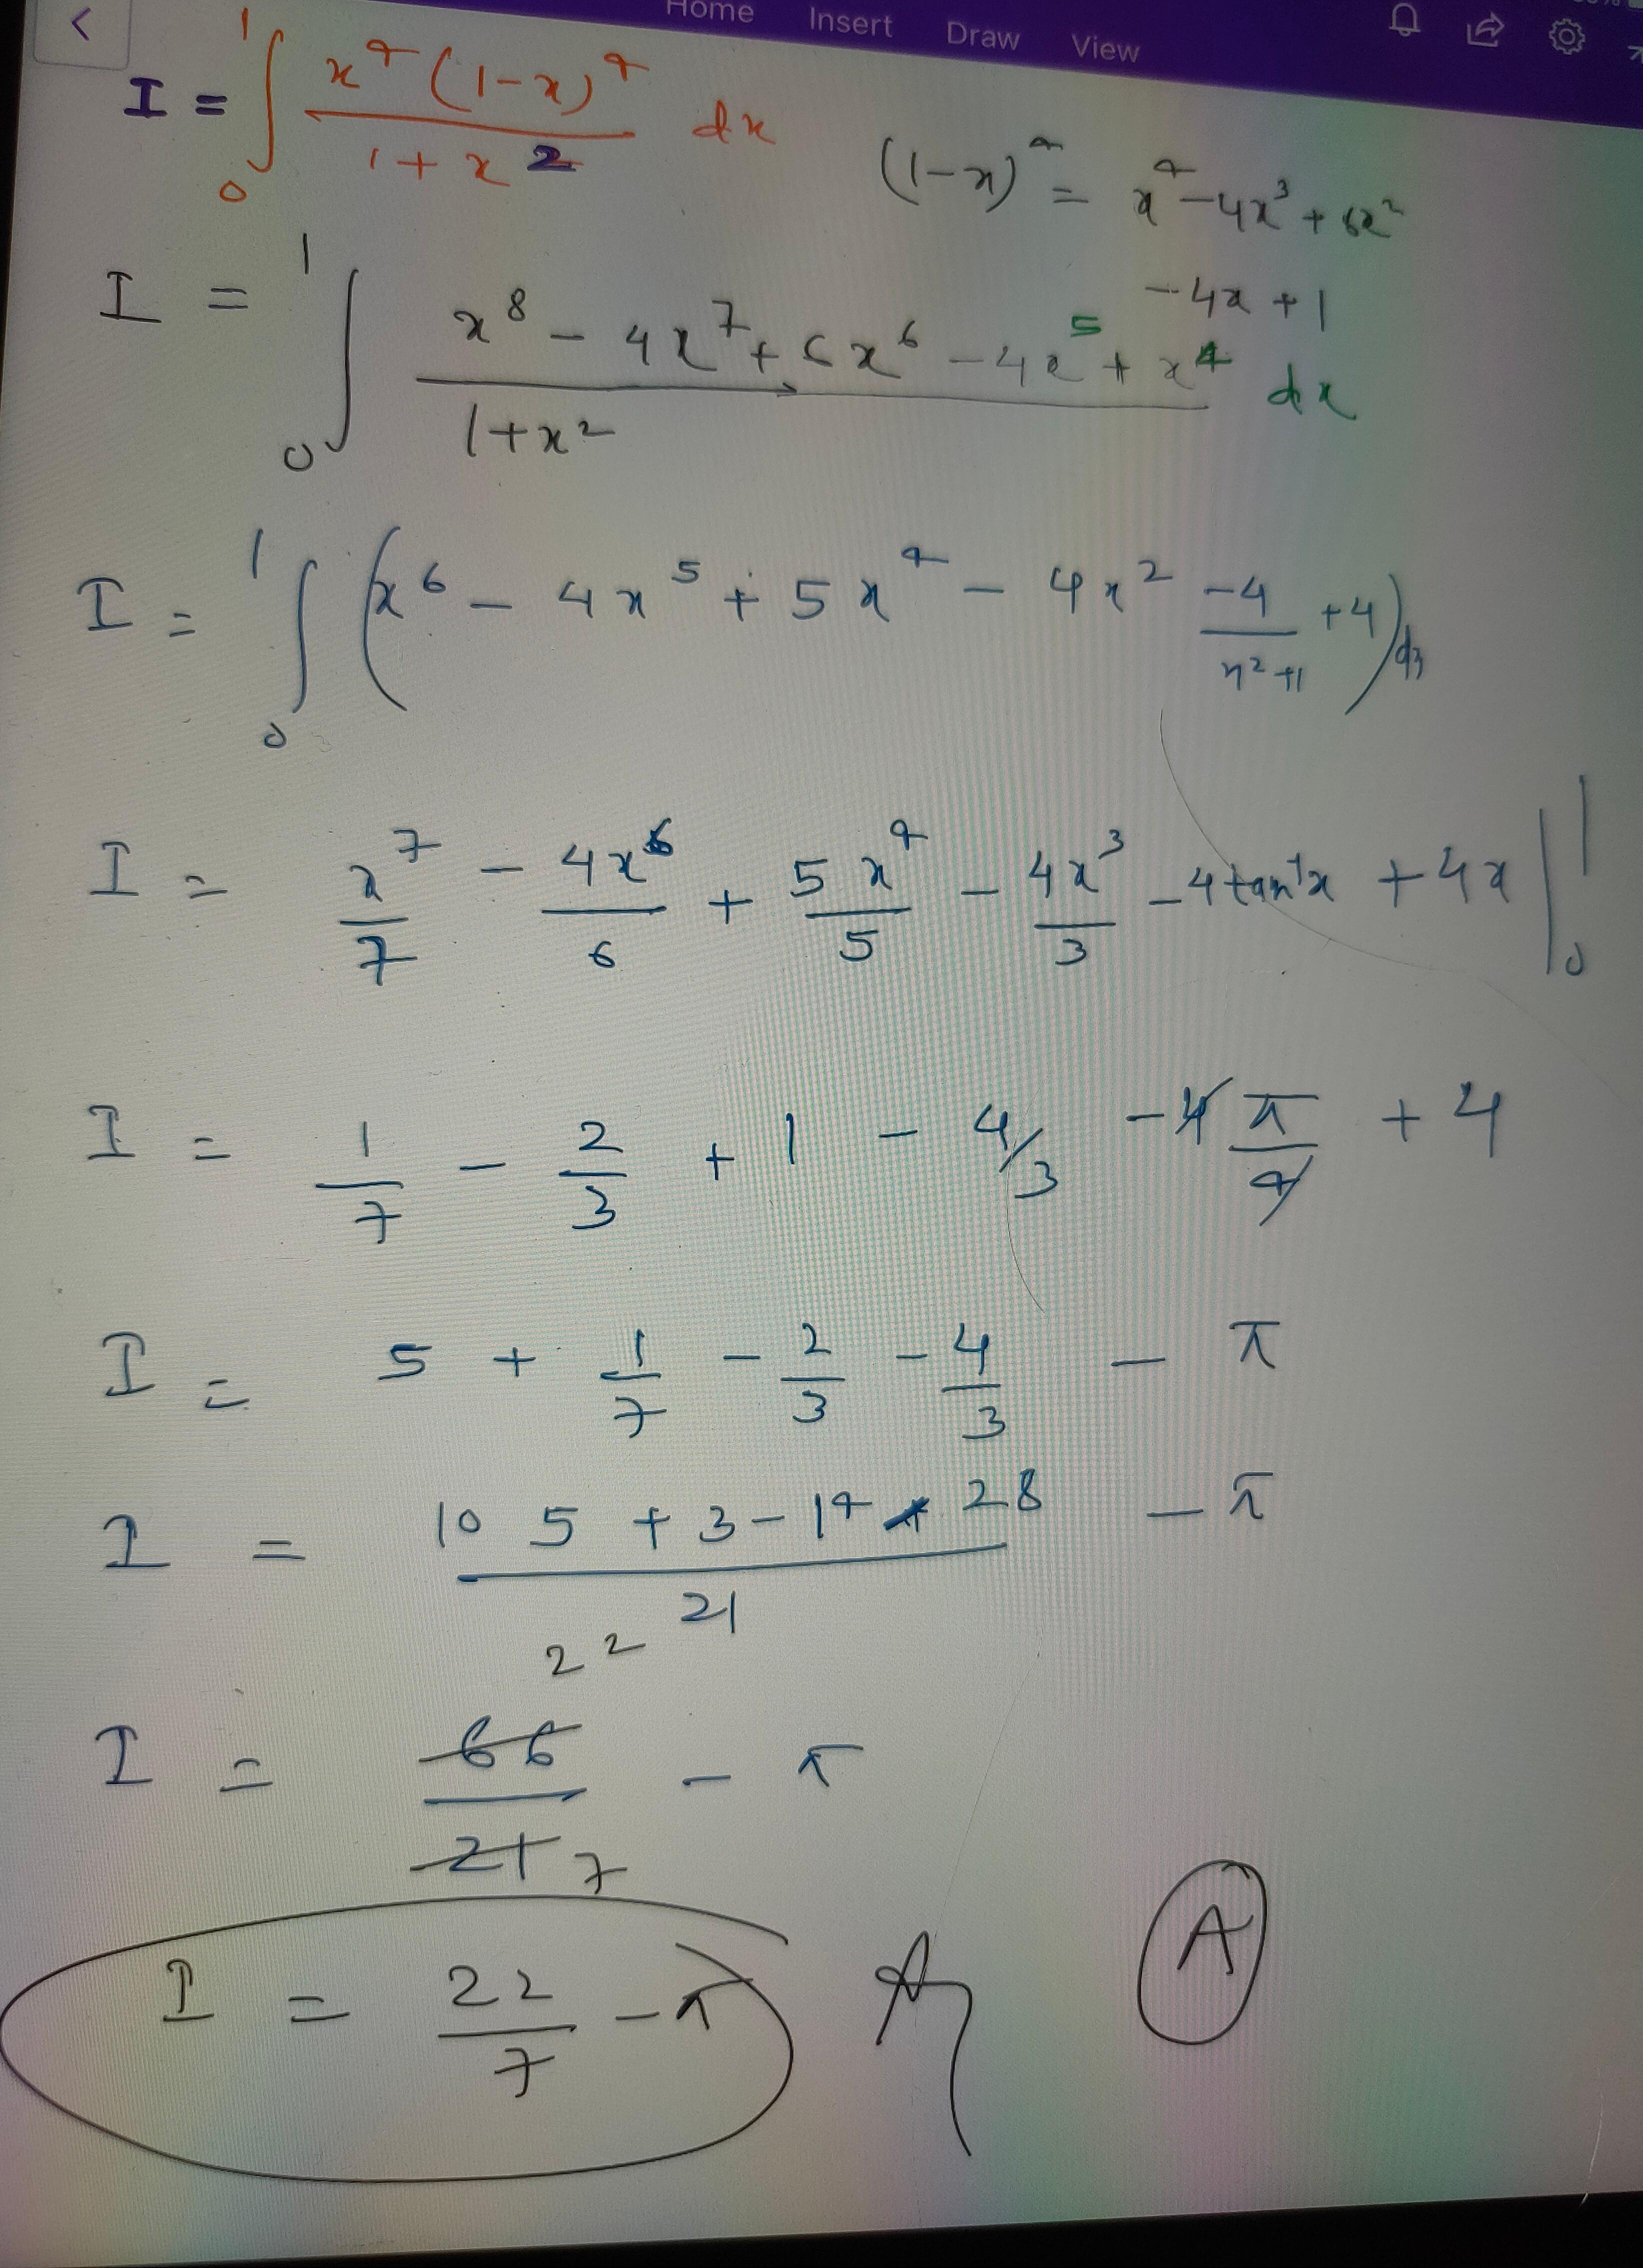 Home Insert Draw View
I = ∫₀¹ x⁴(1-x)⁴ / 1+x² dx
(1-x)⁴ = x⁴ - 4x³ + 6x²
- 4x + 1
I = ∫₀¹ x⁸ - 4x⁷ + 6x⁶ - 4x⁵ + x⁴ / 1+x² dx
I = ∫₀¹ (x⁶ - 4x⁵ + 5x⁴ - 4x² -4/x²+1 +4) dx
I = x⁷/7 - 4x⁶/6 + 5x⁴/5 - 4x³/3 - 4tan⁻¹x + 4x |₀¹
I = 1/7 - 2/3 + 1 - 4/3 - 4π/4 + 4
I = 5 + 1/7 - 2/3 - 4/3 - π
I = 105 + 3 - 14 - 28 / 21 - π
22
I = 66/21 - π
7
I = 22/7 - π
A